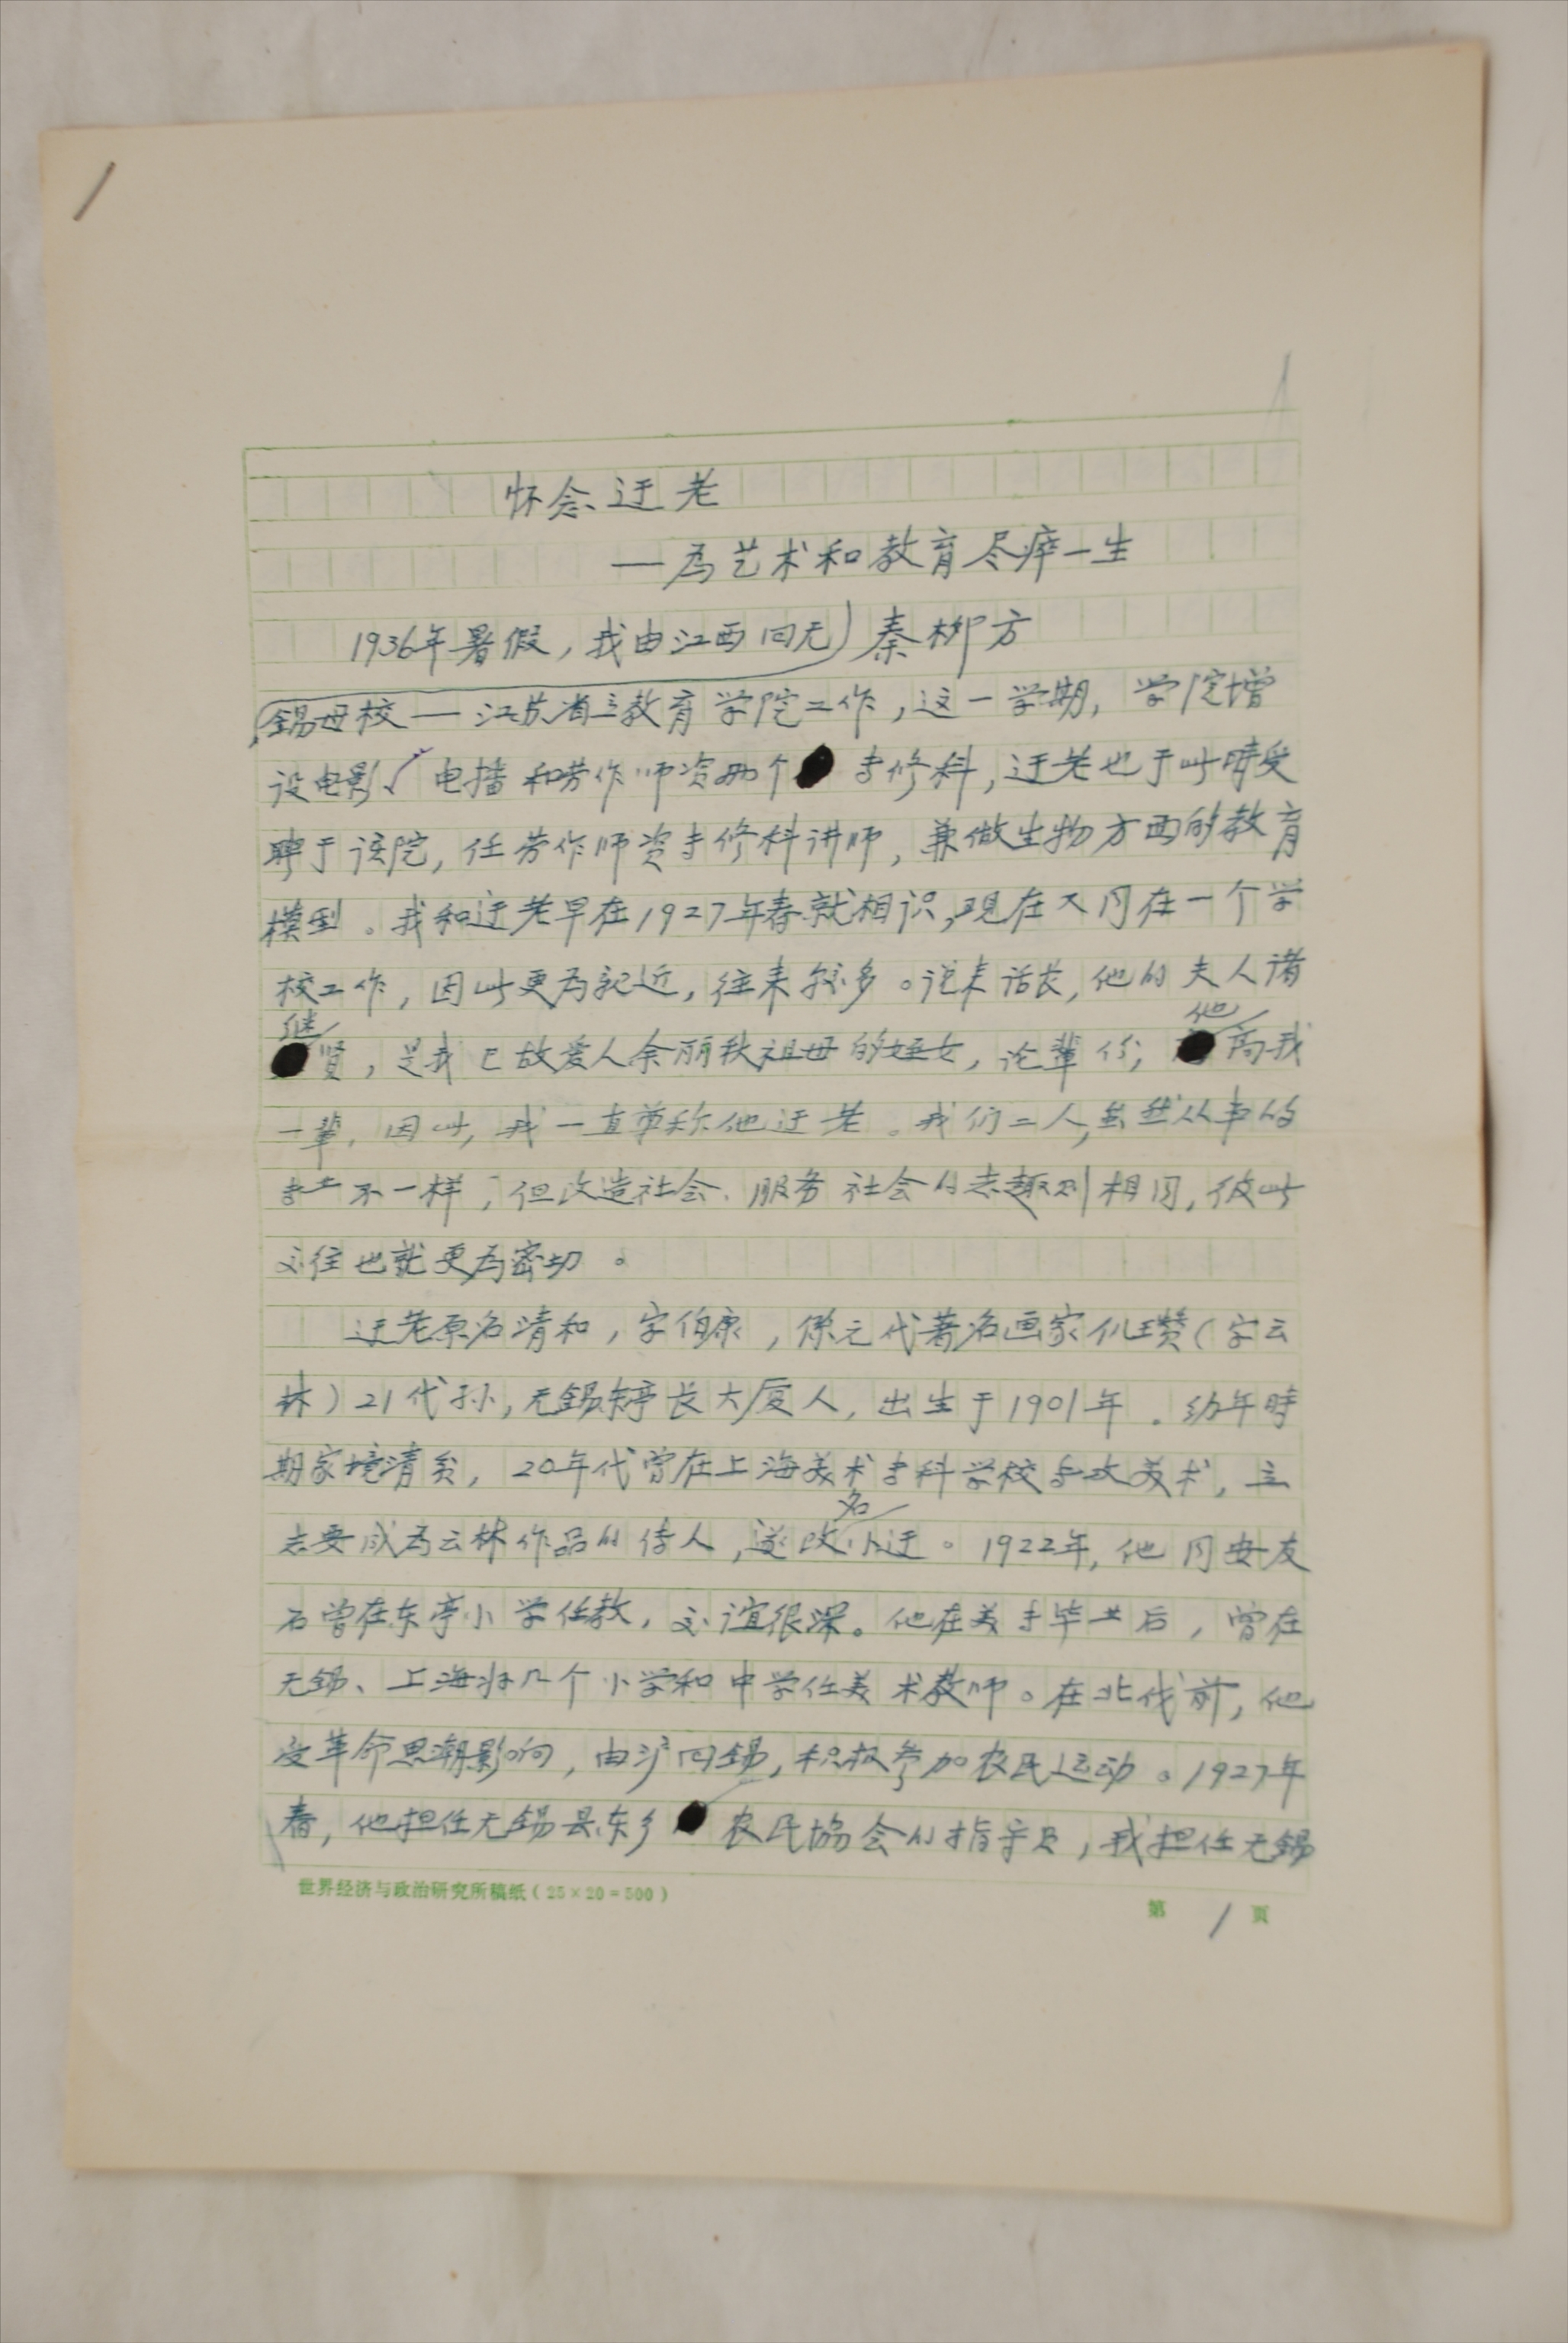 怀念迂老
—为艺术和教育尽瘁一生
1936年暑假，我由江西回无 秦柳方
锡母校—江苏省立教育学院工作，这一学期，学院增
设电影、电播和劳作师资两个专修科，迂老也于此時受
聘于该院，任劳作师资专修科讲师，兼做生物方面的教育
模型。我和迂老早在1927年春就相识，现在又同在一个学
校工作，因此更为亲近，往来较多。说来话长，他的夫人诸
继贤，是我已故爱人余丽秋祖母的姪女，论辈份，他高我
一辈，因此，我一直尊称他迂老。我们二人，虽然从事的
专业不一样，但改造社会、服务社会的志趣则相同，彼此
交往也就更为密切。
迂老原名清和，字伯康，係元代著名画家倪瓒（字云
林）21代孙，无锡东亭长大厦人，出生于1901年。幼年時
期家境清贫，20年代曾在上海美术专科学校专攻美术，立
志要成为云林作品的传人，遂改名小迂。1922年，他同安友
石曾在东亭小学任教，交谊很深。他在美专毕业后，曾在
无锡、上海好几个小学和中学任美术教师。在北伐前，他
受革命思潮影响，由沪回锡，积极参加农民运动。1927年
春，他担任无锡县东乡农民協会的指导员，我担任无锡
世界经济与政治研究所稿纸（25×20=500）
第 1 页